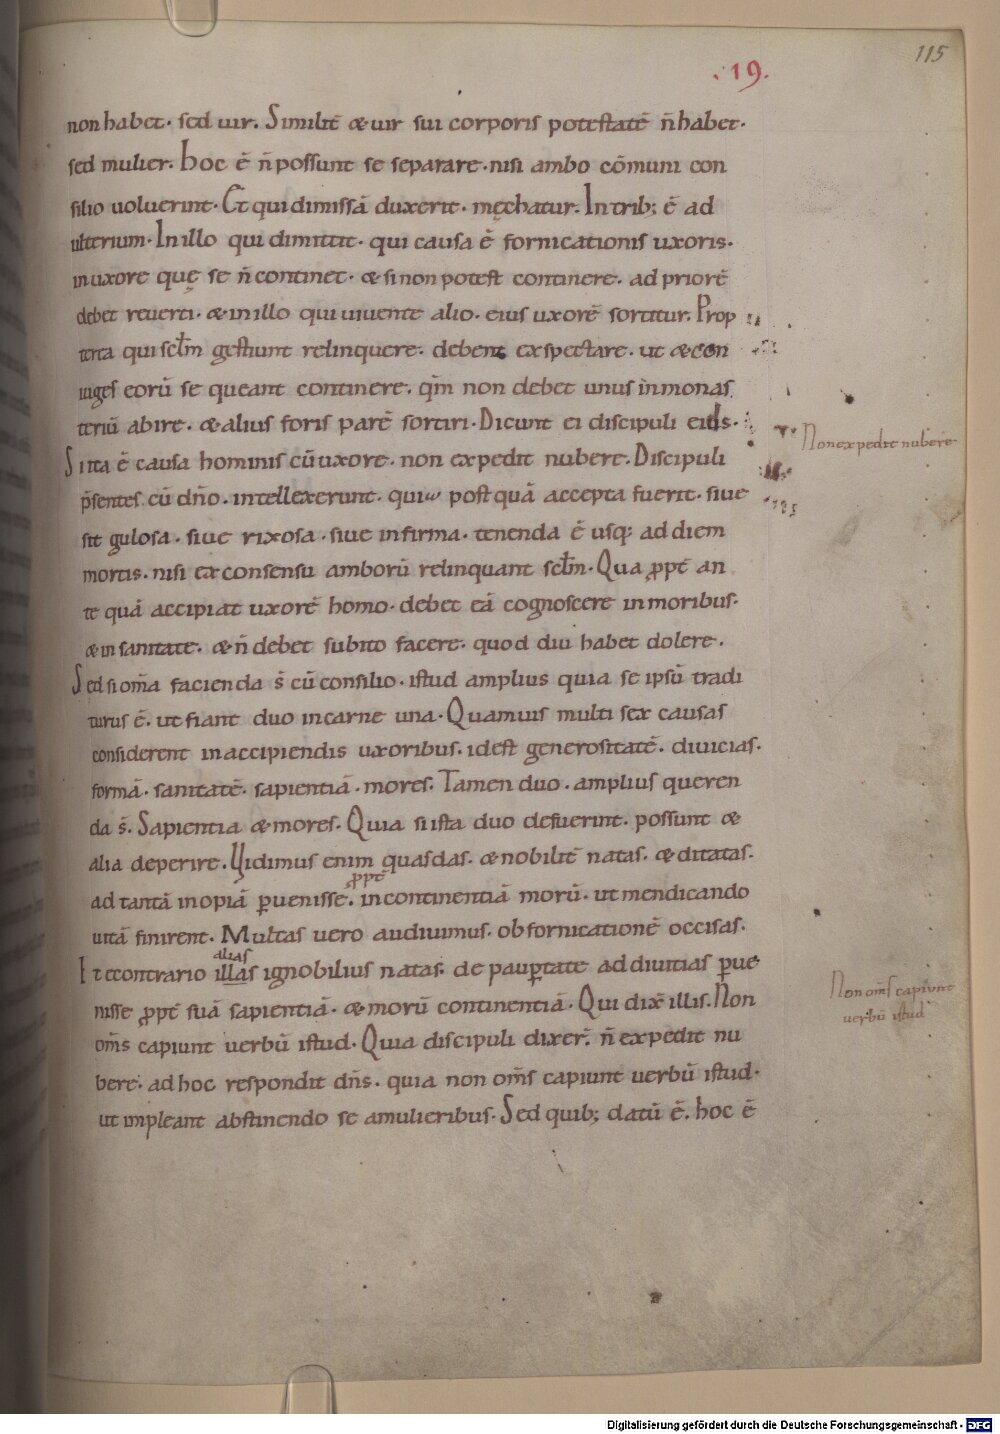 115
.19.
non habet. sed uir. Similit̄ & uir sui corporis potestatē n̄ habet.
sed mulier. hoc ē n̄ possunt se separare. nisi ambo cōmuni con
silio uoluerint. Et qui dimissā duxerit. męchatur. In trib; ē ad
ulterium. In illo qui dimittit. qui causa ē fornicationis uxoris.
in uxore quę se n̄ continet. & si non potest continere. ad priorē
debet reuerti. & in illo qui uiuente alio. eius uxorē sortitur. Prop
terea qui scl̄m gestiunt relinquere. debent exspectare. ut & con
iuges eorū se queant continere. qm̄ non debet unus in monas
teriū abire. & alius foris parē sortiri. Dicunt ei discipuli eius.
Non expedit nubere
Si ita ē causa hominis cū uxore. non expedit nubere. Discipuli
p̄sentes cū dn̄o. intellexerunt. quia postquā accepta fuerit. siue
sit gulosa. siue rixosa. siue infirma. tenenda ē usq; ad diem
mortis. nisi ex consensu amborū relinquant scl̄m. Qua ꝓpt̄ an
te quā accipiat uxorē homo. debet eā cognoscere in moribus.
& in sanitate. & n̄ debet subito facere. quod diu habet dolere.
Sed si om̄a facienda s̄ cū consilio. istud amplius quia se ipsū tradi
turus ē. ut fiant duo in carne una. Quamuis multi sex causas
considerent in accipiendis uxoribus. idest generositatē. diuicias.
formā. sanitatē. sapientiā. mores. Tamen duo. amplius queren
da s̄. Sapientia & mores. Quia si ista duo defuerint. possunt &
alia deperire. Uidimus enim quasdas. & nobilit̄ natas. & ditatas.
ꝓpt̄
ad tantā inopiā ꝑuenisse. incontinentiā morū. ut mendicando
uitā finirent. Multas uero audiuimus. ob fornicationē occisas.
alias
Et econtrario illas ignobilius natas. de pauꝑtate ad diuitias ꝑue
nisse ꝓpt̄ suā sapientiā. & morū continentiā. Qui dix̄ illis. Non
Non om̄s capiunt
uerbū istud
om̄s capiunt uerbū istud. Quia discipuli dixer̄. n̄ expedit nu
bere. ad hoc respondit dn̄s. quia non om̄s capiunt uerbū istud.
ut impleant abstinendo se a mulieribus. Sed quib; datū ē. hoc ē
Digitalisierung gefördert durch die Deutsche Forschungsgemeinschaft - DFG